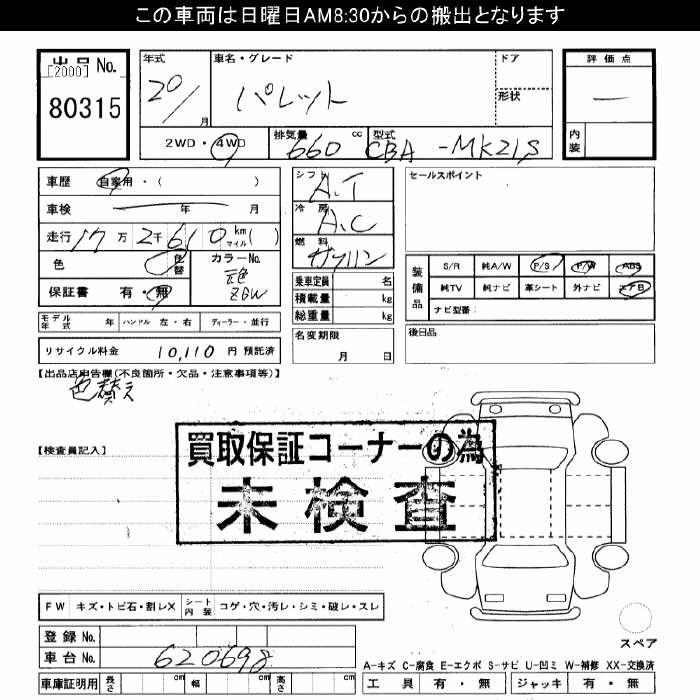 この車両は日曜日AM8:30からの搬出となります
出品 No.
[2000]
80315
年式
20/
月
車名・グレード
パレット
ドア
形状
評価点
―
内装
2WD・4WD
排気量
660
cc
型式
CBA -MK21S
車歴
自家用・( )
車検
年 月
走行
17万2千610
km
マイル
( )
色
色替
カラーNo.
元色
ZGW
保証書 有・無
シフト
A.T
冷房
A.C
燃料
ガソリン
乗車定員 名
積載量 kg
総重量 kg
セールスポイント
装備品
S/R 純A/W P/S P/W ABS
純TV 純ナビ 革シート 外ナビ エアB
ナビ型番:
モデル年式 年 ハンドル 左・右 ディーラー・並行
名変期限
月 日
後日品
リサイクル料金 10,110 円 預託済
【出品店申告欄(不良箇所・欠品・注意事項等)】
色替え
買取保証コーナーの為
未検査
【検査員記入】
FW キズ・トビ石・割レX
シート内装
コゲ・穴・汚レ・シミ・破レ・スレ
登録 No.
車台 No.
620698
車庫証明用 長さ cm 幅 cm 高さ cm
スペア
A-キズ C-腐食 E-エクボ S-サビ U-凹ミ W-補修 XX-交換済
工具 有・無 ジャッキ 有・無